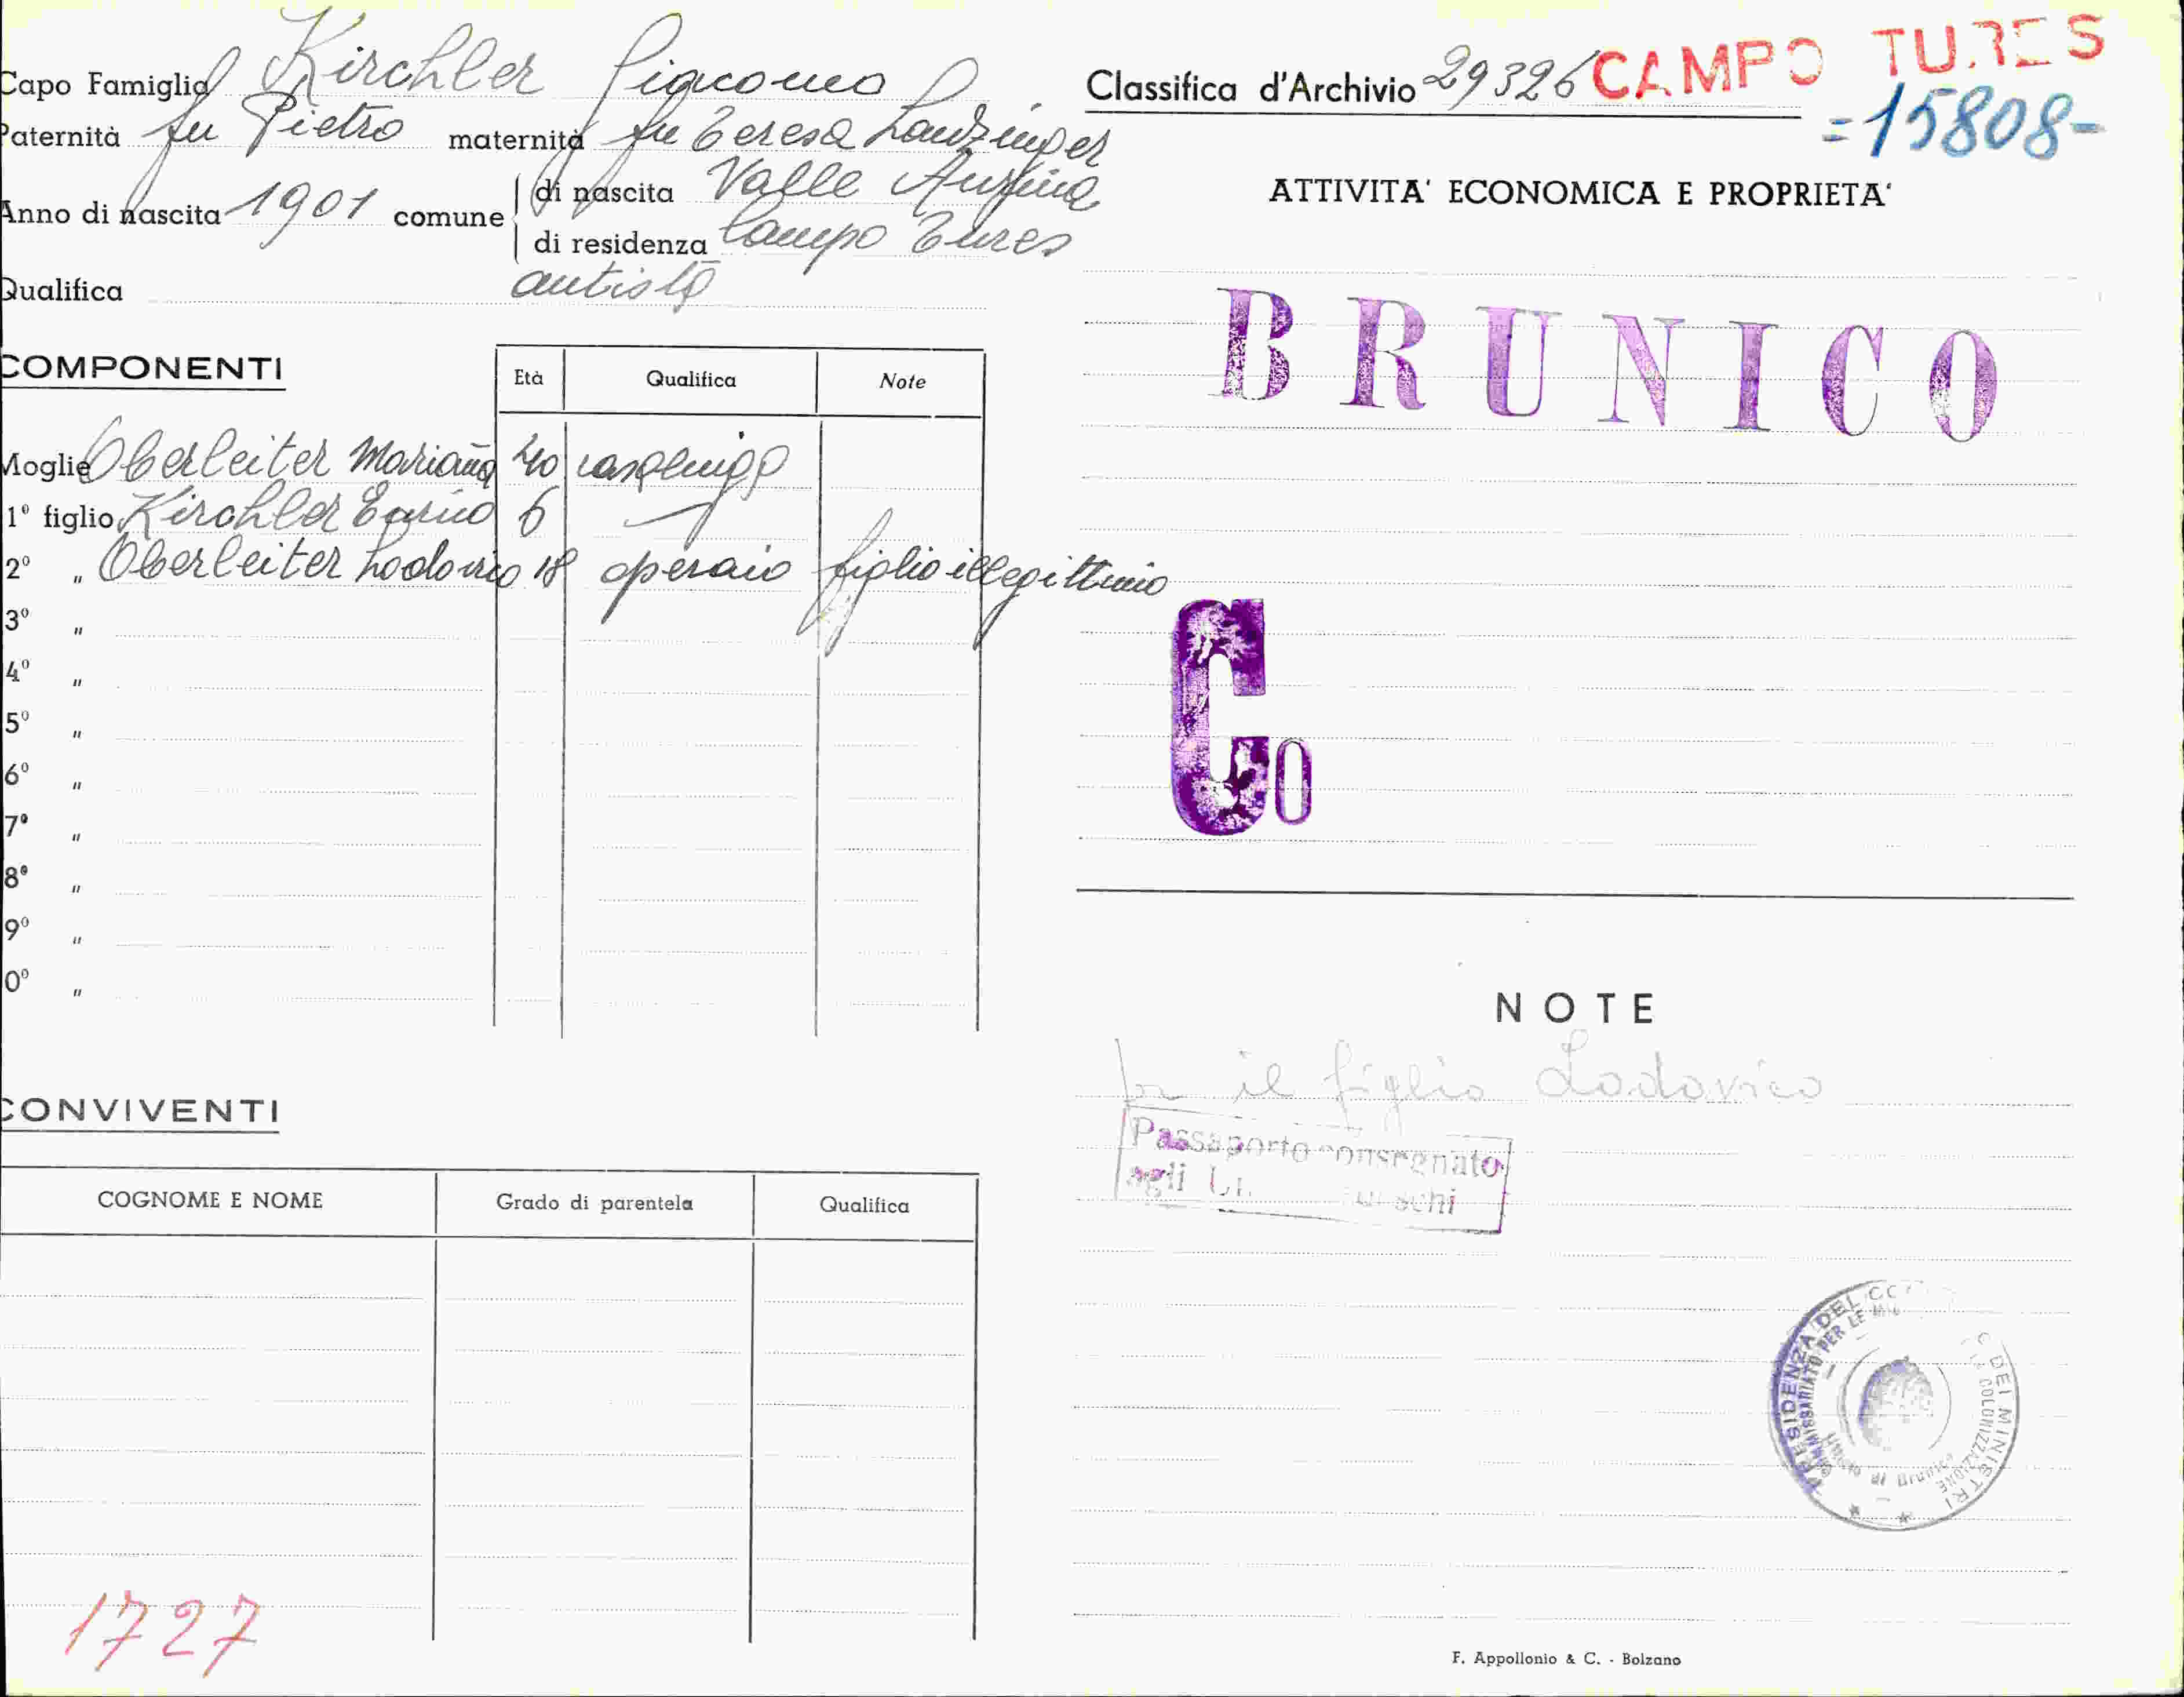 Capo Famiglia Kirchler Giacomo
Paternità fu Pietro maternità fu Teresa
Anno di nascita 1901 comune di nascita Valle Aurina
di residenza Campo Tures
Qualifica autista
COMPONENTI
Età Qualifica Note
Moglie Oberleiter Marianna 40 casalinga
1° figlio Kirchler Enrico 6
2° " Oberleiter Lodovico 18 operaio figlio illegittimo
3° "
4° "
5° "
6° "
7° "
8° "
9° "
0° "
CONVIVENTI
COGNOME E NOME Grado di parentela Qualifica
1727
Classifica d'Archivio 29326 CAMPO TURES
=15808-
ATTIVITA' ECONOMICA E PROPRIETA'
BRUNICO
Co
NOTE
per il figlio Lodovico
Passaporto consegnato
agli
PRESIDENZA DEL DEI MINISTRI
COMMISSARIATO PER LE COLONIZZAZIONE
di Brunico
F. Appollonio & C. - Bolzano